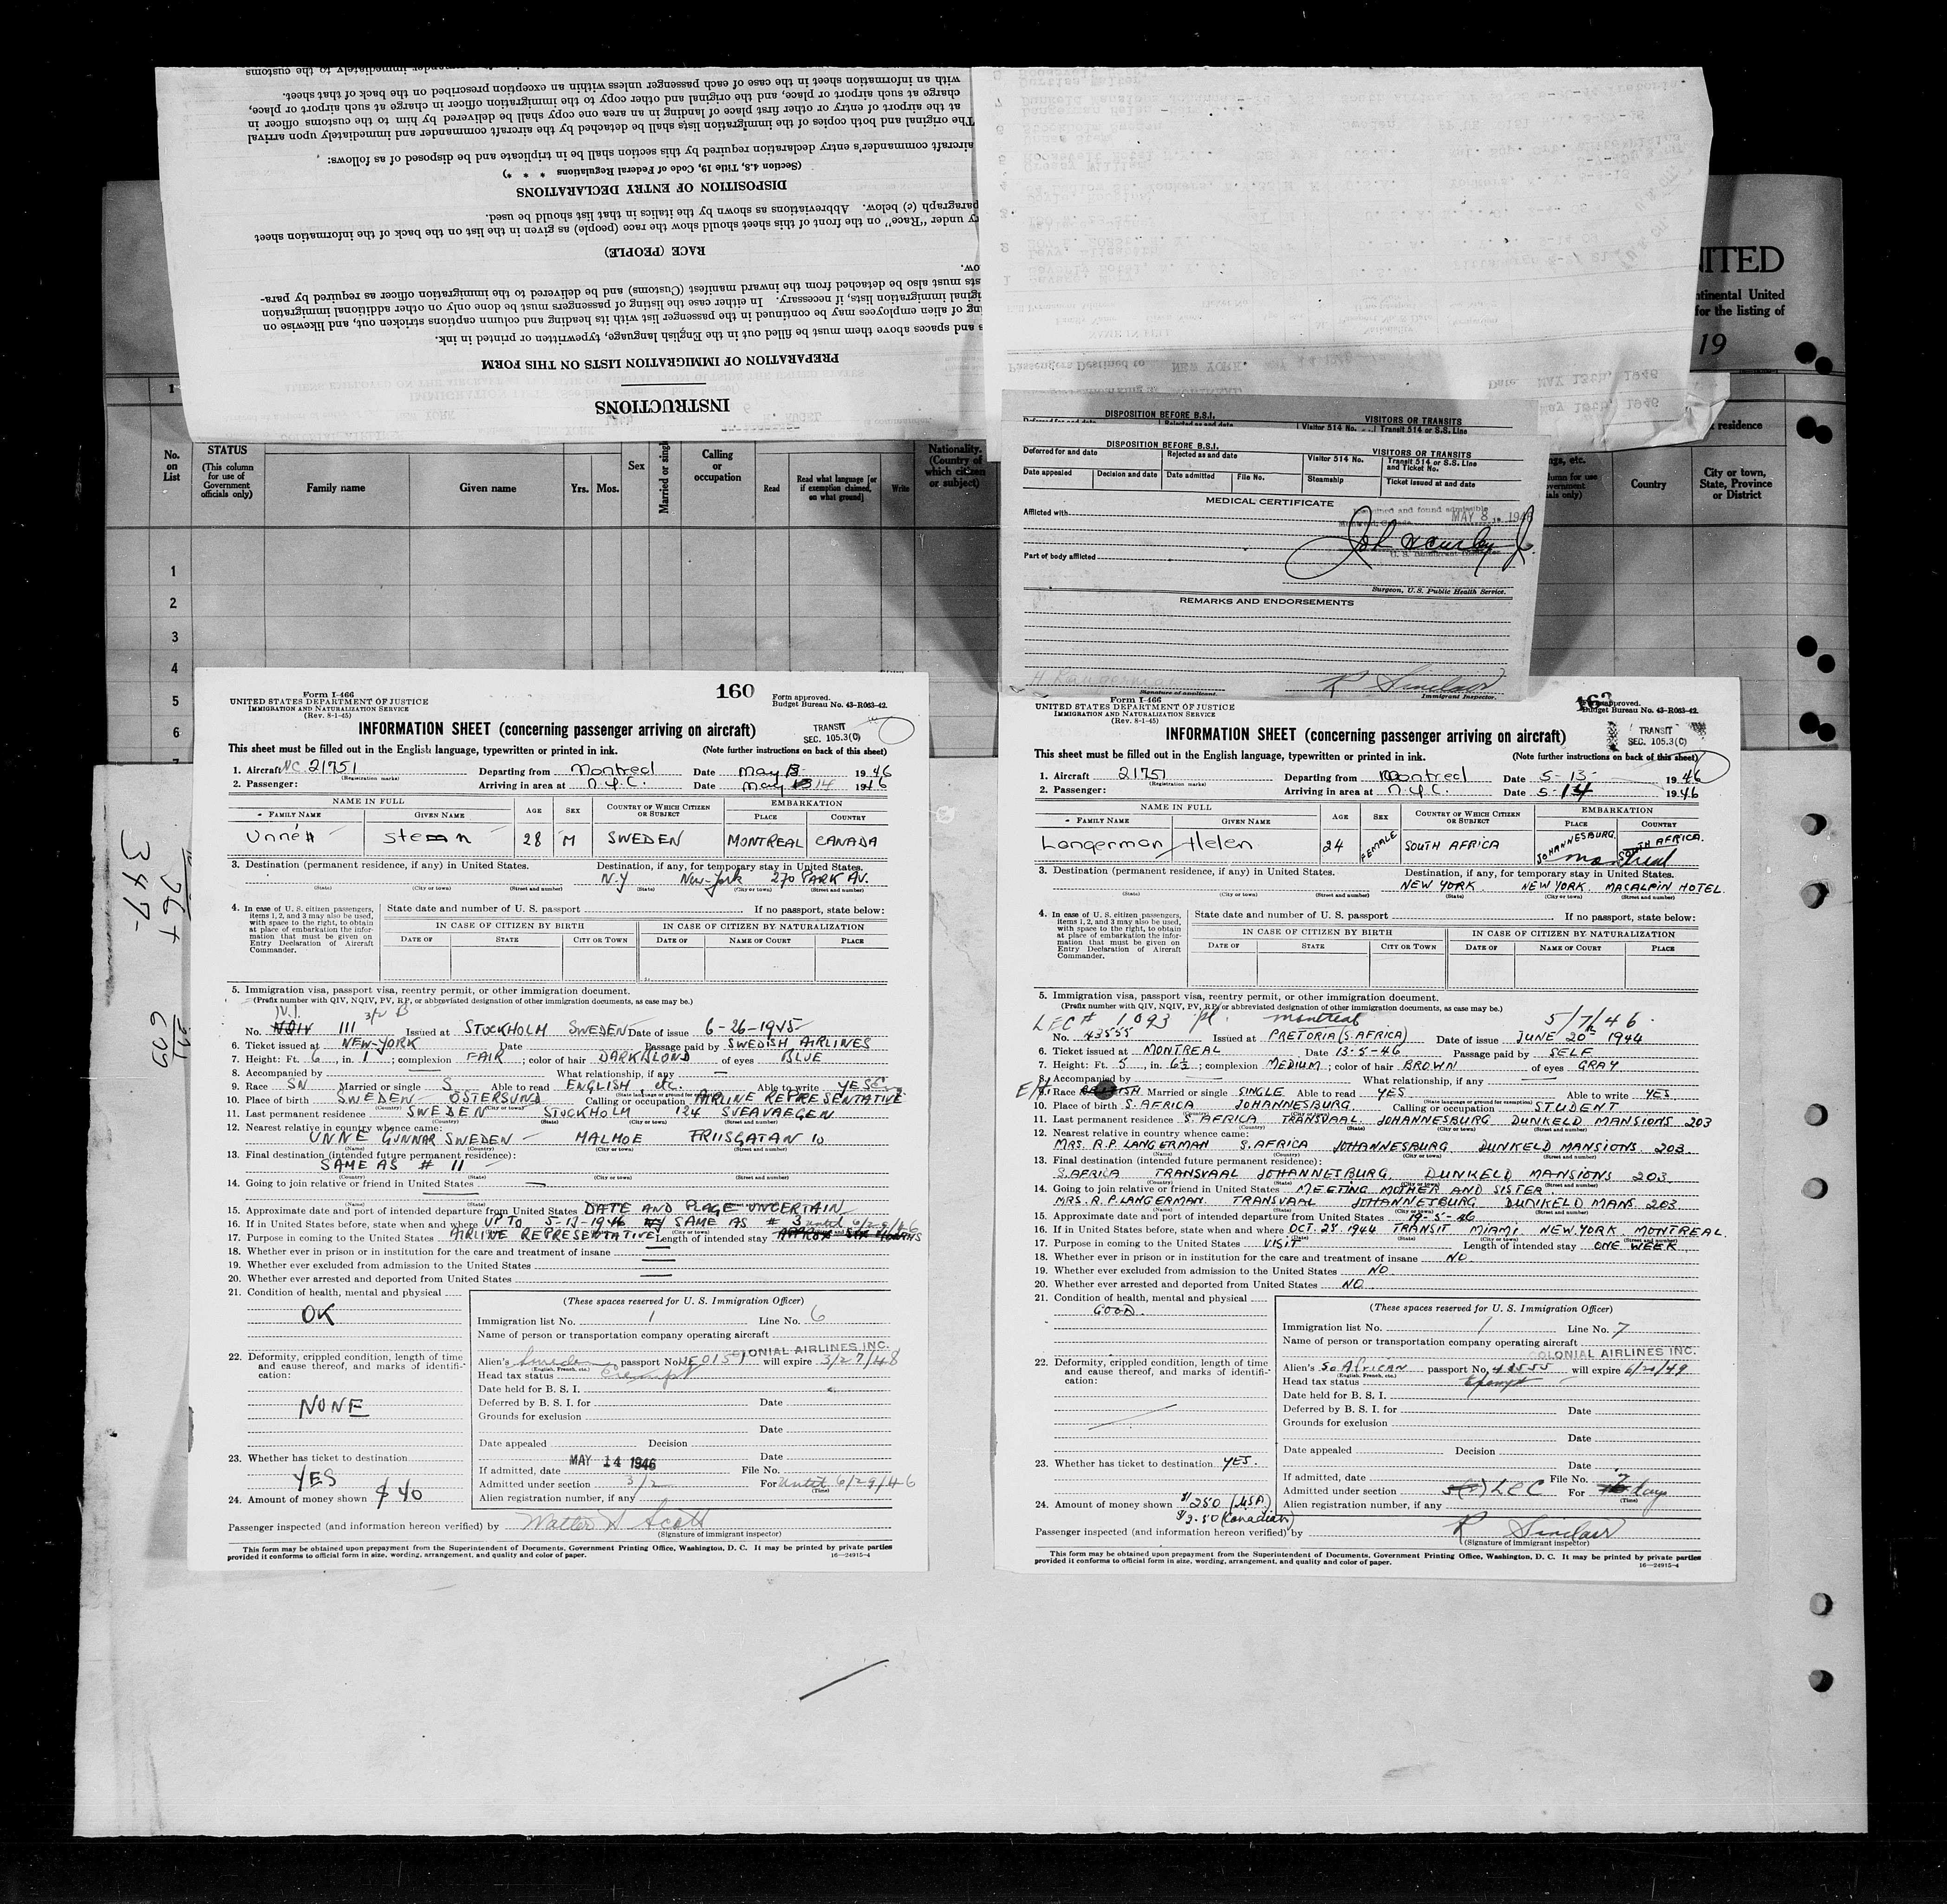 INSTRUCTIONS
PREPARATION OF IMMIGRATION LISTS ON THIS FORM
s and spaces above them must be filled out in the English language, typewritten or printed in ink.
ng of alien employees may be continued in the passenger list with its heading and column captions stricken out, and likewise on
iginal immigration lists, if necessary. In either case the listing of passengers must be done only on other additional immigration
sts must also be detached from the inward manifest (Customs) and be delivered to the immigration officer as required by para-
ow.
RACE (PEOPLE)
ry under "Race" on the front of this sheet should show the race (people) as given in the list on the back of the information sheet
paragraph (c) below. Abbreviations as shown by the italics in that list should be used.
DISPOSITION OF ENTRY DECLARATIONS
(Section 4.8, Title 19, Code of Federal Regulations * * *)
aircraft commander's entry declaration required by this section shall be in triplicate and be disposed of as follows:
The original and both copies of the immigration lists shall be detached by the aircraft commander and immediately upon arrival
at the airport of entry or other first place of landing in an area one copy shall be delivered by him to the customs officer in
charge at such airport or place, and the original and other copy to the immigration officer in charge at such airport or place,
with an information sheet in the case of each passenger unless within an exception prescribed on the back of that sheet.
immediately to the customs
NITED
ntinental United
for the listing of
19
No. on List
STATUS
(This column for use of Government officials only)
Family name
Given name
Yrs. Mos.
Sex
Married or single
Calling or occupation
Read
Read what language [or if exemption claimed, on what ground]
Write
Nationality. (Country of which citizen or subject)
residence
Country
City or town, State, Province or District
1
2
3
4
5
6
DISPOSITION BEFORE B.S.I. VISITORS OR TRANSITS
Visitor 514 No. Transit 514 or S.S. Line
DISPOSITION BEFORE B.S.I. VISITORS OR TRANSITS
Deferred for and date Rejected as and date Visitor 514 No. Transit 514 or S.S. Line and Ticket No.
Date appealed Decision and date Date admitted File No. Steamship Ticket issued at and date
MEDICAL CERTIFICATE
Afflicted with
Examined and found admissible
MAY 8 1946
Part of body afflicted
Surgeon, U.S. Public Health Service.
REMARKS AND ENDORSEMENTS
R Sinclair
Signature of applicant. Immigrant Inspector.
347-
609
160
Form I-466
UNITED STATES DEPARTMENT OF JUSTICE
IMMIGRATION AND NATURALIZATION SERVICE
(Rev. 8-1-45)
Form approved.
Budget Bureau No. 43-R063-42.
INFORMATION SHEET (concerning passenger arriving on aircraft)
TRANSIT
SEC. 105.3(C)
This sheet must be filled out in the English language, typewritten or printed in ink. (Note further instructions on back of this sheet)
1. Aircraft NC 21751 Departing from Montreal Date May 13 1946
(Registration marks)
2. Passenger: Arriving in area at N.Y.C. Date May 14 1946
NAME IN FULL AGE SEX COUNTRY OF WHICH CITIZEN OR SUBJECT EMBARKATION
FAMILY NAME GIVEN NAME PLACE COUNTRY
Unné Sten 28 M SWEDEN MONTREAL CANADA
3. Destination (permanent residence, if any) in United States. Destination, if any, for temporary stay in United States.
N-Y New-York 270 PARK AV.
(State) (City or town) (Street and number) (State) (City or town) (Street and number)
4. In case of U. S. citizen passengers, items 1, 2, and 3 may also be used, with space to the right, to obtain at place of embarkation the information that must be given on Entry Declaration of Aircraft Commander.
State date and number of U. S. passport If no passport, state below:
IN CASE OF CITIZEN BY BIRTH IN CASE OF CITIZEN BY NATURALIZATION
DATE OF STATE CITY OR TOWN DATE OF NAME OF COURT PLACE
5. Immigration visa, passport visa, reentry permit, or other immigration document.
(Prefix number with QIV, NQIV, PV, RP, or abbreviated designation of other immigration documents, as case may be.)
3/2 B
No. NQIV 111 Issued at STOCKHOLM SWEDEN Date of issue 6-26-1945
6. Ticket issued at NEW-YORK Date Passage paid by SWEDISH AIRLINES
7. Height: Ft. 6, in. 1; complexion FAIR; color of hair DARKBLOND of eyes BLUE
8. Accompanied by — What relationship, if any —
9. Race SN Married or single S Able to read ENGLISH, etc. Able to write YES
10. Place of birth SWEDEN ÖSTERSUND Calling or occupation AIRLINE REPRESENTATIVE
11. Last permanent residence SWEDEN STOCKHOLM 124 SVEAVAEGEN
12. Nearest relative in country whence came:
UNNE GUNNAR SWEDEN — MALMOE FRIISGATAN 10
13. Final destination (intended future permanent residence):
SAME AS # 11
14. Going to join relative or friend in United States —
15. Approximate date and port of intended departure from United States DATE AND PLACE UNCERTAIN
16. If in United States before, state when and where UP TO 5-13-1946 SAME AS # 3
17. Purpose in coming to the United States AIRLINE REPRESENTATIVE Length of intended stay until 6/29/46
18. Whether ever in prison or in institution for the care and treatment of insane —
19. Whether ever excluded from admission to the United States —
20. Whether ever arrested and deported from United States —
21. Condition of health, mental and physical
OK
22. Deformity, crippled condition, length of time and cause thereof, and marks of identification:
NONE
23. Whether has ticket to destination
YES
24. Amount of money shown $40
(These spaces reserved for U. S. Immigration Officer)
Immigration list No. 1 Line No. 6
Name of person or transportation company operating aircraft
COLONIAL AIRLINES INC.
Alien's Sweden passport No. UE0151 will expire 3/27/48
(English, French, etc.)
Head tax status exempt
Date held for B. S. I.
Deferred by B. S. I. for Date
Grounds for exclusion
Date
Date appealed Decision
Date
If admitted, date MAY 14 1946 File No.
Admitted under section 3/2 For Until 6/29/46
(Time)
Alien registration number, if any
Passenger inspected (and information hereon verified) by Walter H Scott
(Signature of immigrant inspector)
This form may be obtained upon prepayment from the Superintendent of Documents, Government Printing Office, Washington, D. C. It may be printed by private parties
provided it conforms to official form in size, wording, arrangement, and quality and color of paper. 16—24915-4
Form I-466
UNITED STATES DEPARTMENT OF JUSTICE
IMMIGRATION AND NATURALIZATION SERVICE
(Rev. 8-1-45)
approved.
Budget Bureau No. 43-R063-42.
INFORMATION SHEET (concerning passenger arriving on aircraft)
TRANSIT
SEC. 105.3(C)
This sheet must be filled out in the English language, typewritten or printed in ink. (Note further instructions on back of this sheet)
1. Aircraft 21751 Departing from Montreal Date 5-13- 1946
(Registration marks)
2. Passenger: Arriving in area at N.Y.C. Date 5-14 1946
NAME IN FULL AGE SEX COUNTRY OF WHICH CITIZEN OR SUBJECT EMBARKATION
FAMILY NAME GIVEN NAME PLACE COUNTRY
Langerman Helen 24 FEMALE SOUTH AFRICA JOHANNESBURG SOUTH AFRICA.
Montreal
3. Destination (permanent residence, if any) in United States. Destination, if any, for temporary stay in United States.
NEW YORK NEW YORK MACALPIN HOTEL.
(State) (City or town) (Street and number) (State) (City or town) (Street and number)
4. In case of U. S. citizen passengers, items 1, 2, and 3 may also be used, with space to the right, to obtain at place of embarkation the information that must be given on Entry Declaration of Aircraft Commander.
State date and number of U. S. passport If no passport, state below:
IN CASE OF CITIZEN BY BIRTH IN CASE OF CITIZEN BY NATURALIZATION
DATE OF STATE CITY OR TOWN DATE OF NAME OF COURT PLACE
5. Immigration visa, passport visa, reentry permit, or other immigration document.
(Prefix number with QIV, NQIV, PV, RP, or abbreviated designation of other immigration documents, as case may be.)
LEC # 1093 Montreal 5/7/46.
No. 43555 Issued at PRETORIA (S.AFRICA) Date of issue JUNE 20th 1944
6. Ticket issued at MONTREAL Date 13-5-46 Passage paid by SELF
7. Height: Ft. 5, in. 6½; complexion MEDIUM; color of hair BROWN of eyes GRAY
8. Accompanied by — What relationship, if any —
9. Race Married or single SINGLE Able to read YES Able to write YES
10. Place of birth S. AFRICA JOHANNESBURG. Calling or occupation STUDENT
11. Last permanent residence S. AFRICA TRANSVAAL JOHANNESBURG DUNKELD MANSIONS 203
12. Nearest relative in country whence came:
MRS. R.P. LANGERMAN S. AFRICA JOHANNESBURG DUNKELD MANSIONS 203.
13. Final destination (intended future permanent residence):
S.AFRICA TRANSVAAL JOHANNESBURG, DUNKELD MANSIONS 203.
14. Going to join relative or friend in United States MEETING MOTHER AND SISTER.
MRS. R.P. LANGERMAN TRANSVAAL JOHANNESBURG DUNKELD MANS. 203
15. Approximate date and port of intended departure from United States 19-5-46
16. If in United States before, state when and where OCT. 25 1944 TRANSIT MIAMI NEW.YORK MONTREAL.
17. Purpose in coming to the United States VISIT Length of intended stay ONE WEEK
18. Whether ever in prison or in institution for the care and treatment of insane NO.
19. Whether ever excluded from admission to the United States NO.
20. Whether ever arrested and deported from United States NO.
21. Condition of health, mental and physical
GOOD.
22. Deformity, crippled condition, length of time and cause thereof, and marks of identification:
23. Whether has ticket to destination YES.
24. Amount of money shown $250 (USA)
$3.50 (Canadian)
(These spaces reserved for U. S. Immigration Officer)
Immigration list No. 1 Line No. 7
Name of person or transportation company operating aircraft
COLONIAL AIRLINES INC.
Alien's So African passport No. 43555 will expire 6/20/49
(English, French, etc.)
Head tax status Exempt
Date held for B. S. I.
Deferred by B. S. I. for Date
Grounds for exclusion
Date
Date appealed Decision
Date
If admitted, date File No.
Admitted under section LEC For 7 days
(Time)
Alien registration number, if any
Passenger inspected (and information hereon verified) by R Sinclair
(Signature of immigrant inspector)
This form may be obtained upon prepayment from the Superintendent of Documents, Government Printing Office, Washington, D. C. It may be printed by private parties
provided it conforms to official form in size, wording, arrangement, and quality and color of paper. 16—24915-4